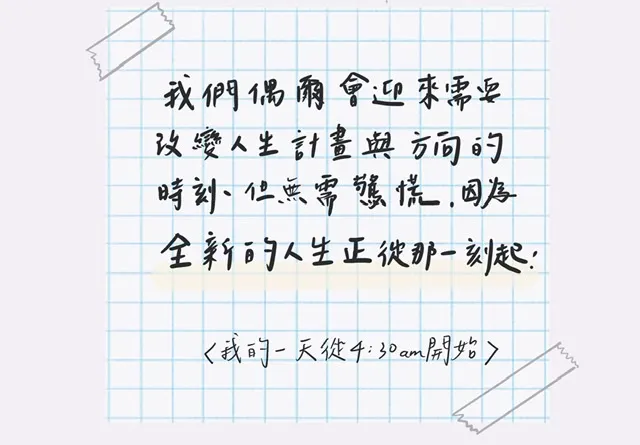 我們偶爾會迎來需要
改變人生計畫與方向的
時刻、但無需驚慌,因為
全新的人生正從那一刻起!
<我的一天從4:30am開始>